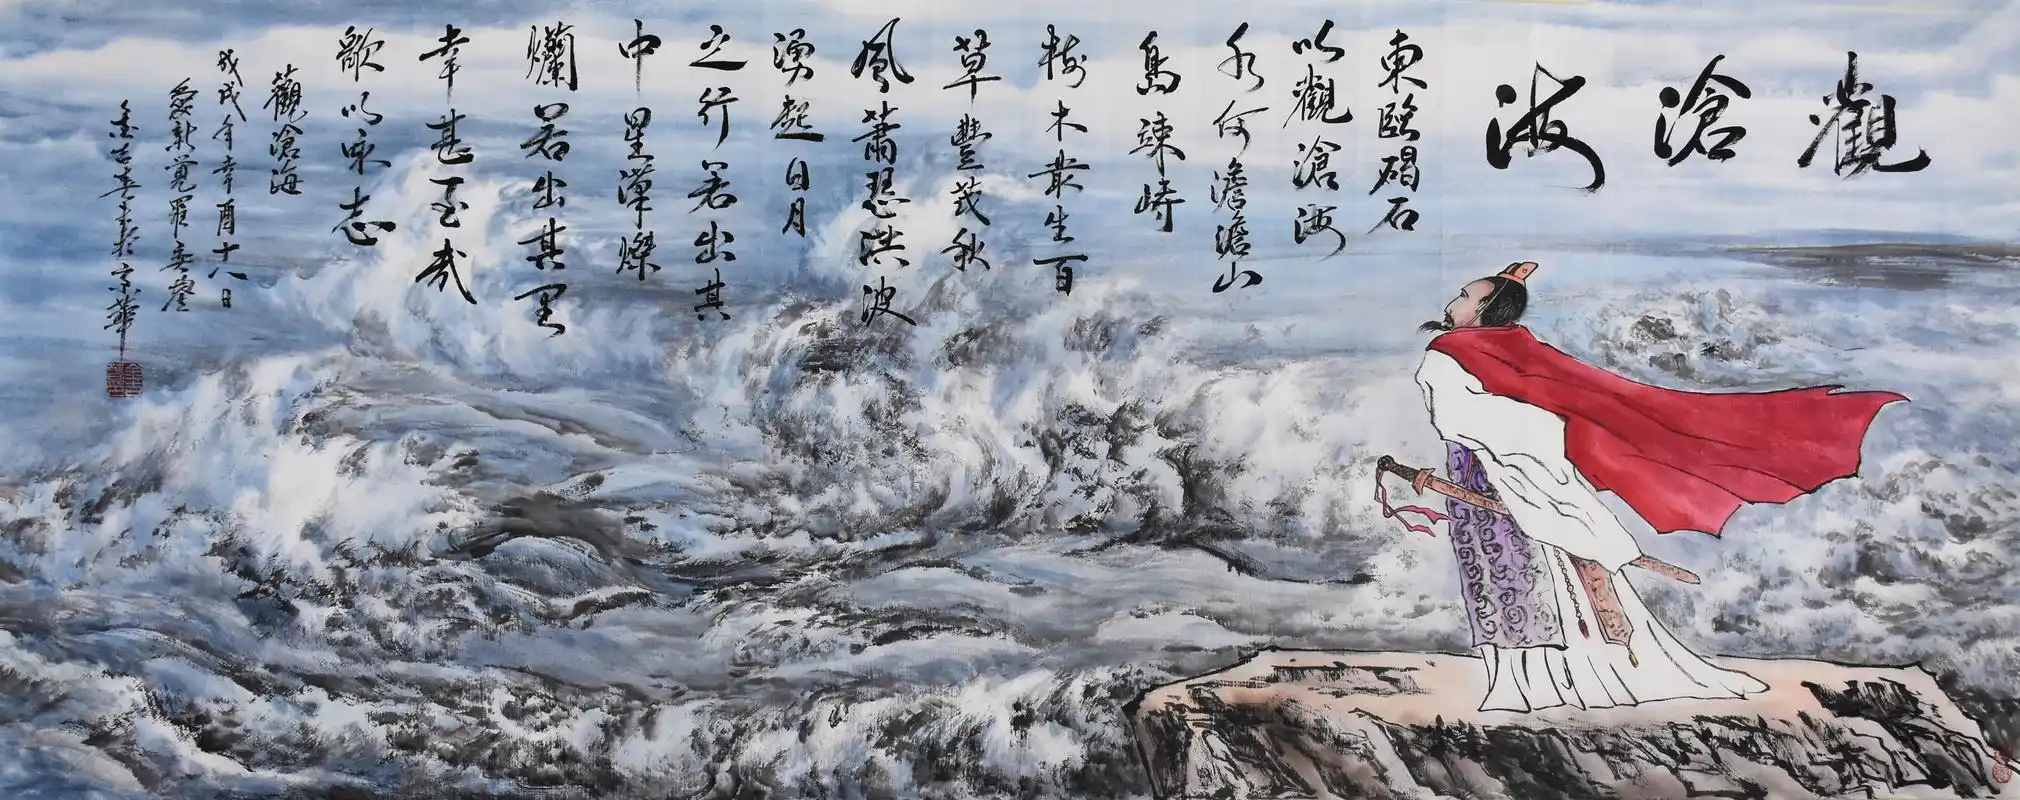 觀滄海
東臨碣石
以觀滄海
水何澹澹山
島竦峙
樹木叢生百
草豐茂秋
風蕭瑟洪波
湧起日月
之行若出其
中星漢燦
爛若出其里
幸甚至哉
歌以詠志
觀滄海
戊戌年辛酉十八日
愛新覺羅
京華